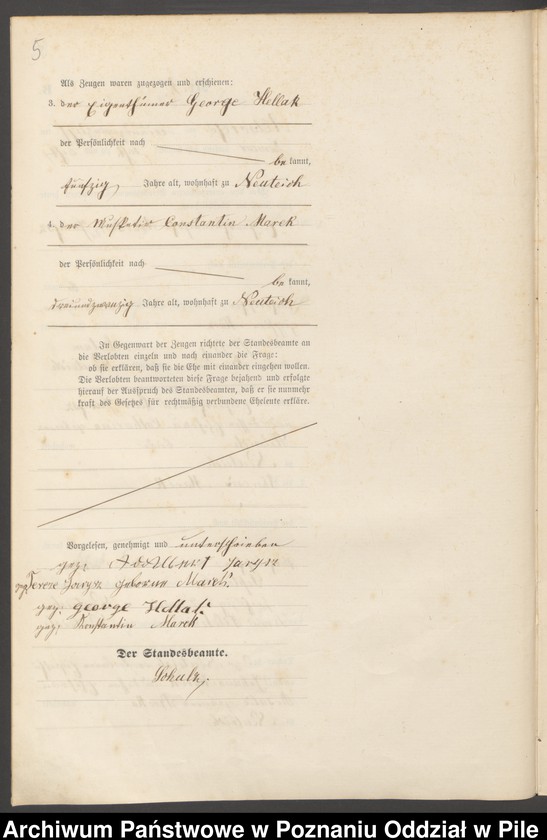 5
Als Zeugen waren zugezogen und erschienen:
3. der Eigenthümer George Hellak
der Persönlichkeit nach
be kannt,
fünfzig Jahre alt, wohnhaft zu Neuteich
4. der Musketir Constantin Marek
der Persönlichkeit nach
be kannt,
dreiundzwanzig Jahre alt, wohnhaft zu Neuteich
In Gegenwart der Zeugen richtete der Standesbeamte an
die Verlobten einzeln und nach einander die Frage:
ob sie erklären, daß sie die Ehe mit einander eingehen wollen.
Die Verlobten beantworteten diese Frage bejahend und erfolgte
hierauf der Ausspruch des Standesbeamten, daß er sie nunmehr
kraft des Gesetzes für rechtmäßig verbundene Eheleute erkläre.
Vorgelesen, genehmigt und unterschrieben
gez:
geborene Marek
gez: George Hellak
gez: Konstantin Marek
Der Standesbeamte.
Schulz
Archiwum Państwowe w Poznaniu Oddział w Pile